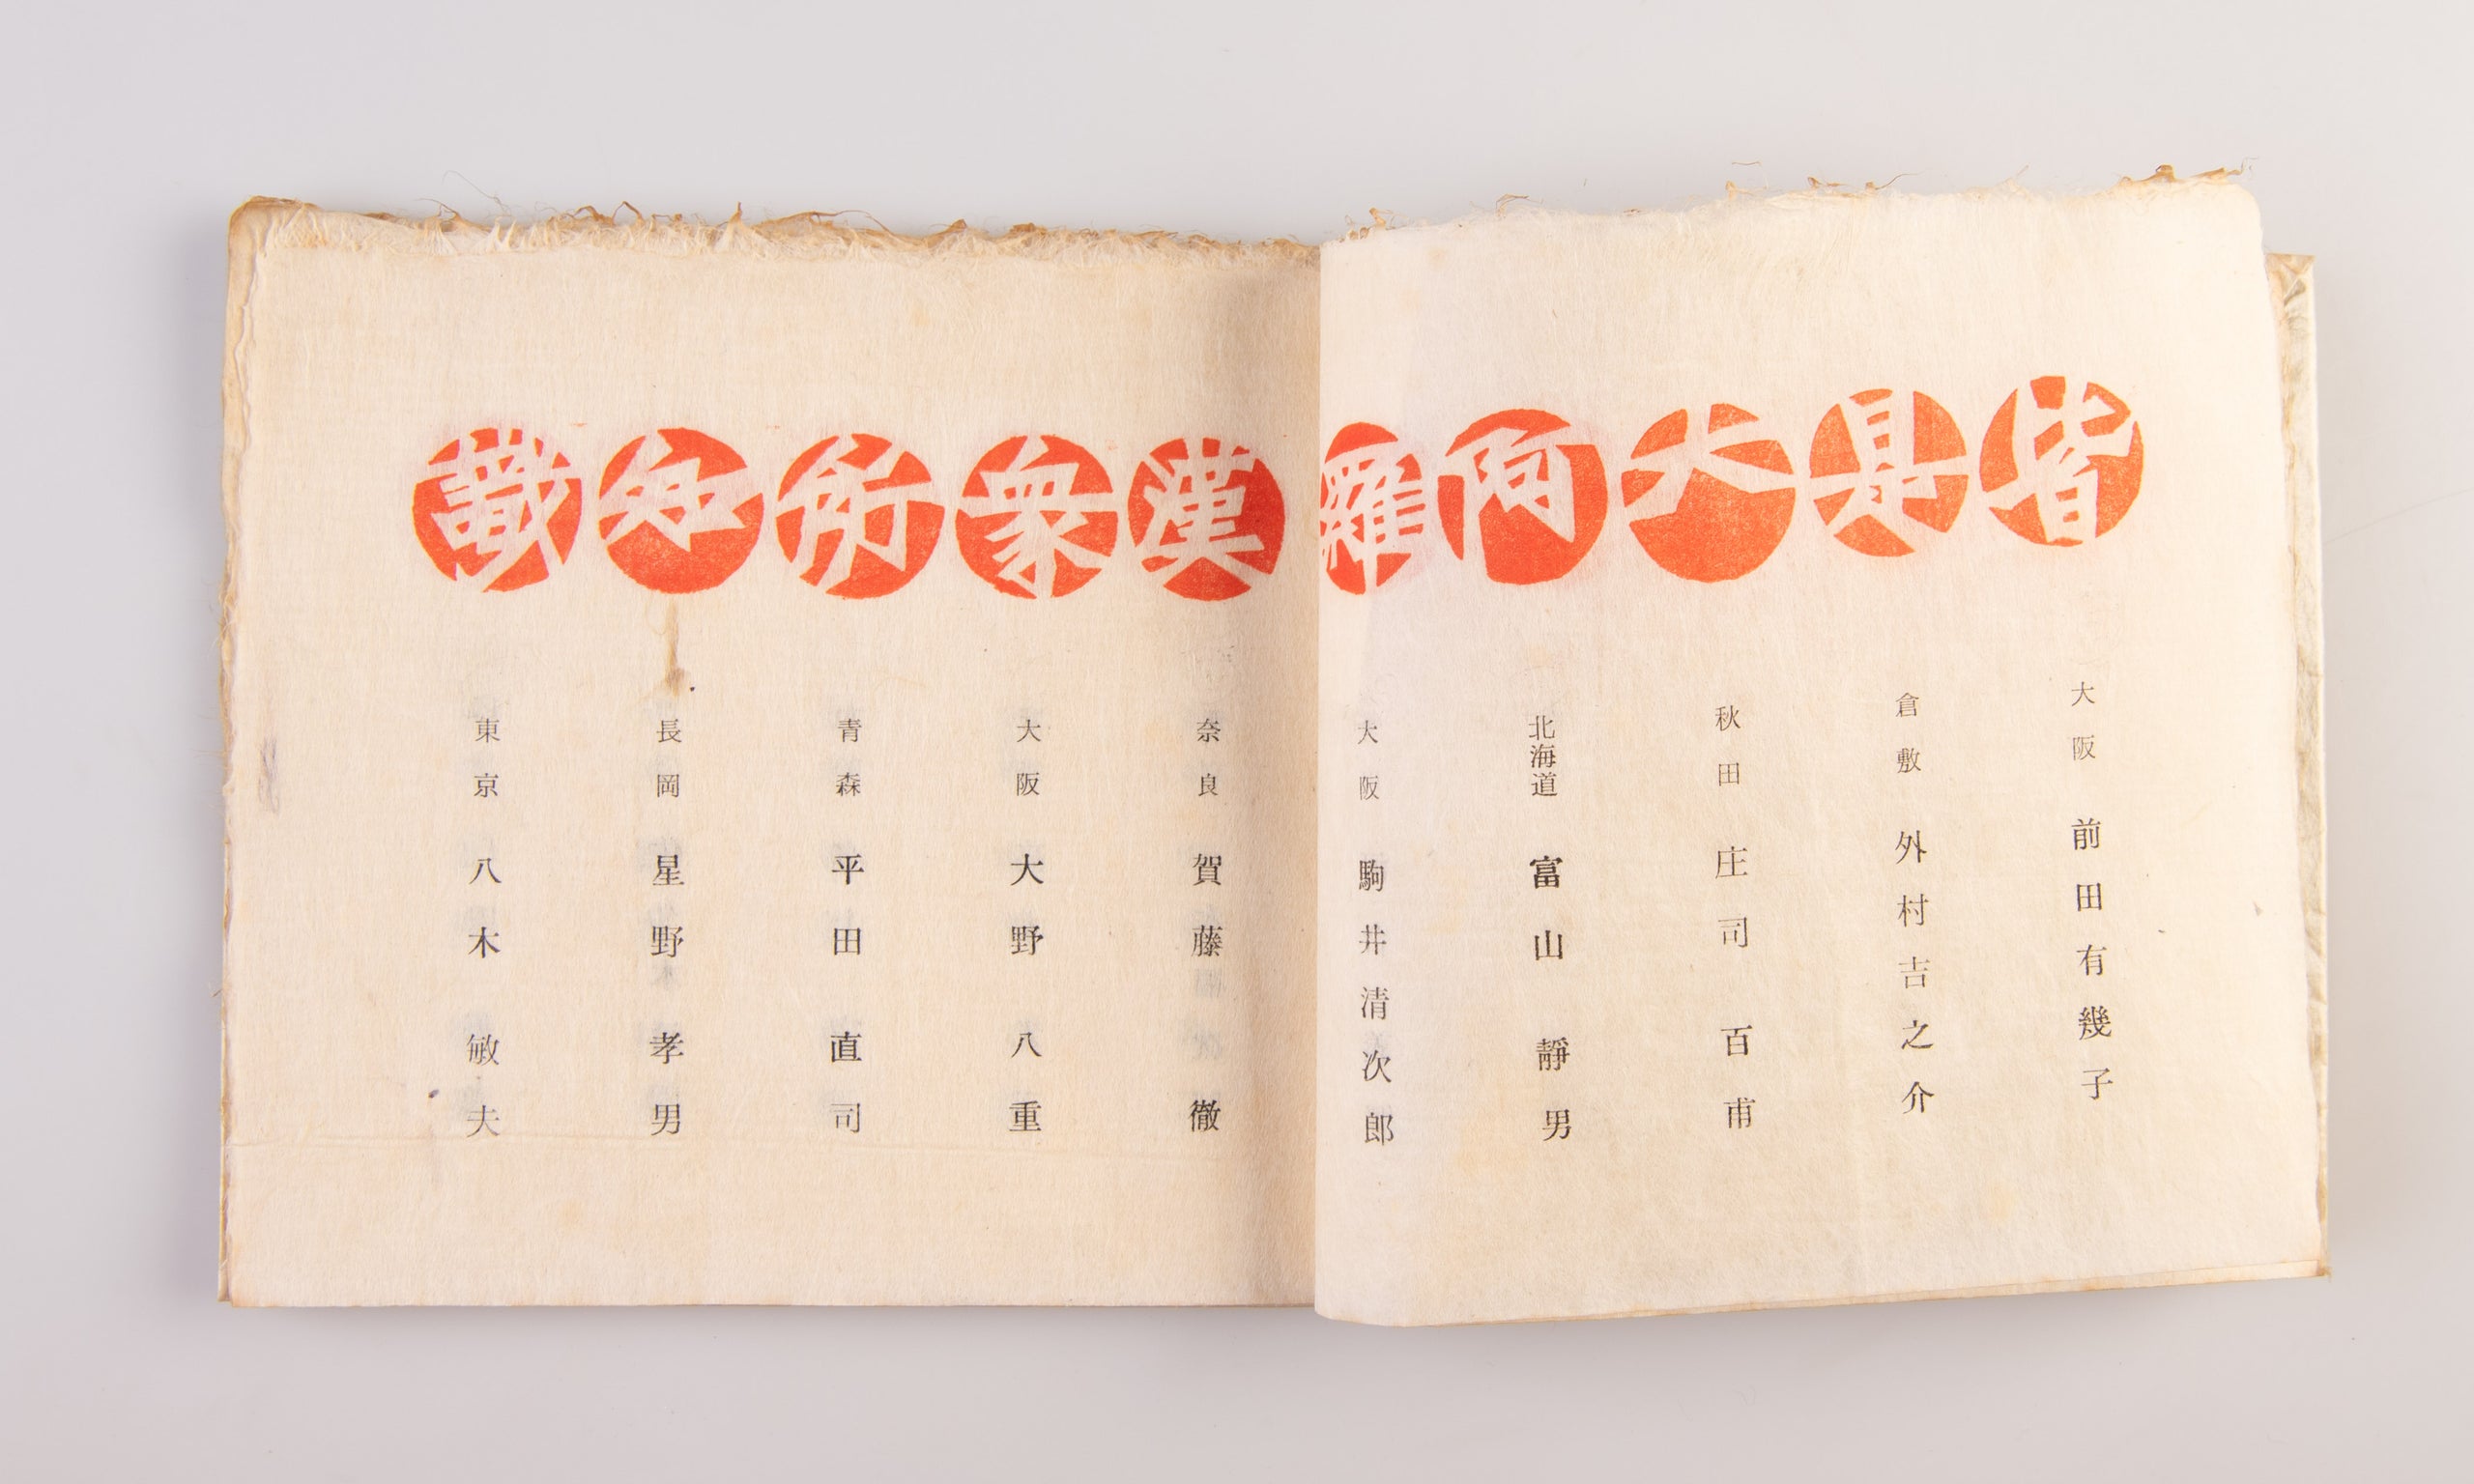 皆是大阿羅漢衆所知識
大阪 前田有幾子
倉敷 外村吉之介
秋田 庄司 百甫
北海道 富山 靜男
大阪 駒井清次郎
奈良 賀藤 徹
大阪 大野 八重
青森 平田 直司
長岡 星野 孝男
東京 八木 敏夫